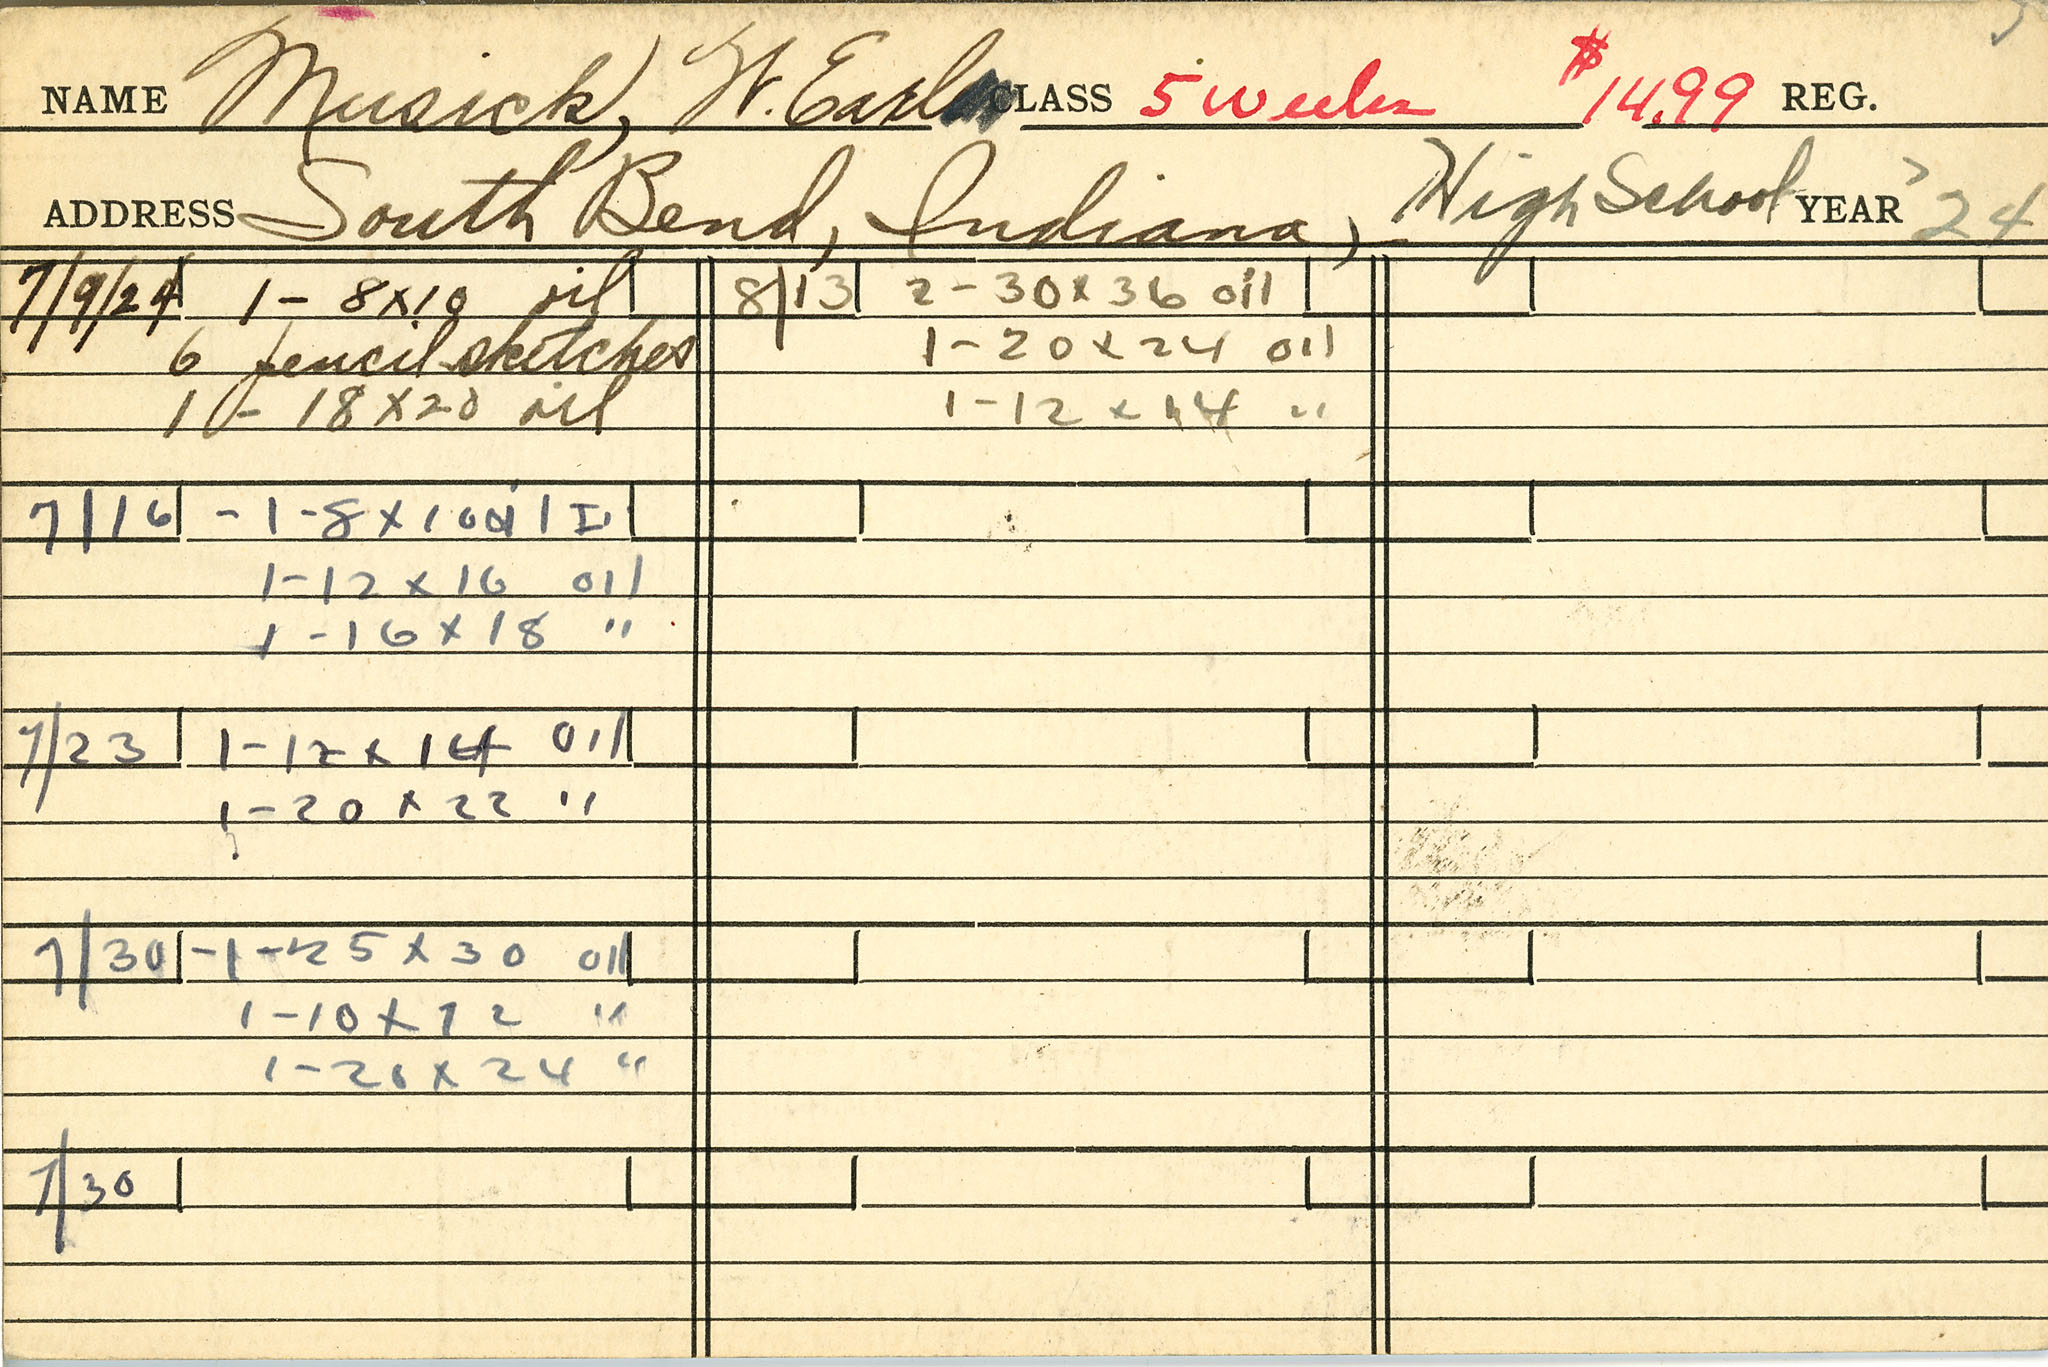 NAME Musick, W. Earl CLASS 5 weeks $14.99 REG.
ADDRESS South Bend, Indiana, High School YEAR '24
7/9/24 1 - 8x10 oil
6 pencil sketches
1 - 18x20 oil
7/16 - 1 - 8x10 oil
1 - 12 x 16 oil
1 - 16 x 18 "
7/23 1 - 12 x 14 oil
1 - 20 x 22 "
7/30 - 1 - 25 x 30 oil
1 - 10 x 12 "
1 - 20 x 24 "
7/30
8/13 2 - 30 x 36 oil
1 - 20 x 24 oil
1 - 12 x 14 "